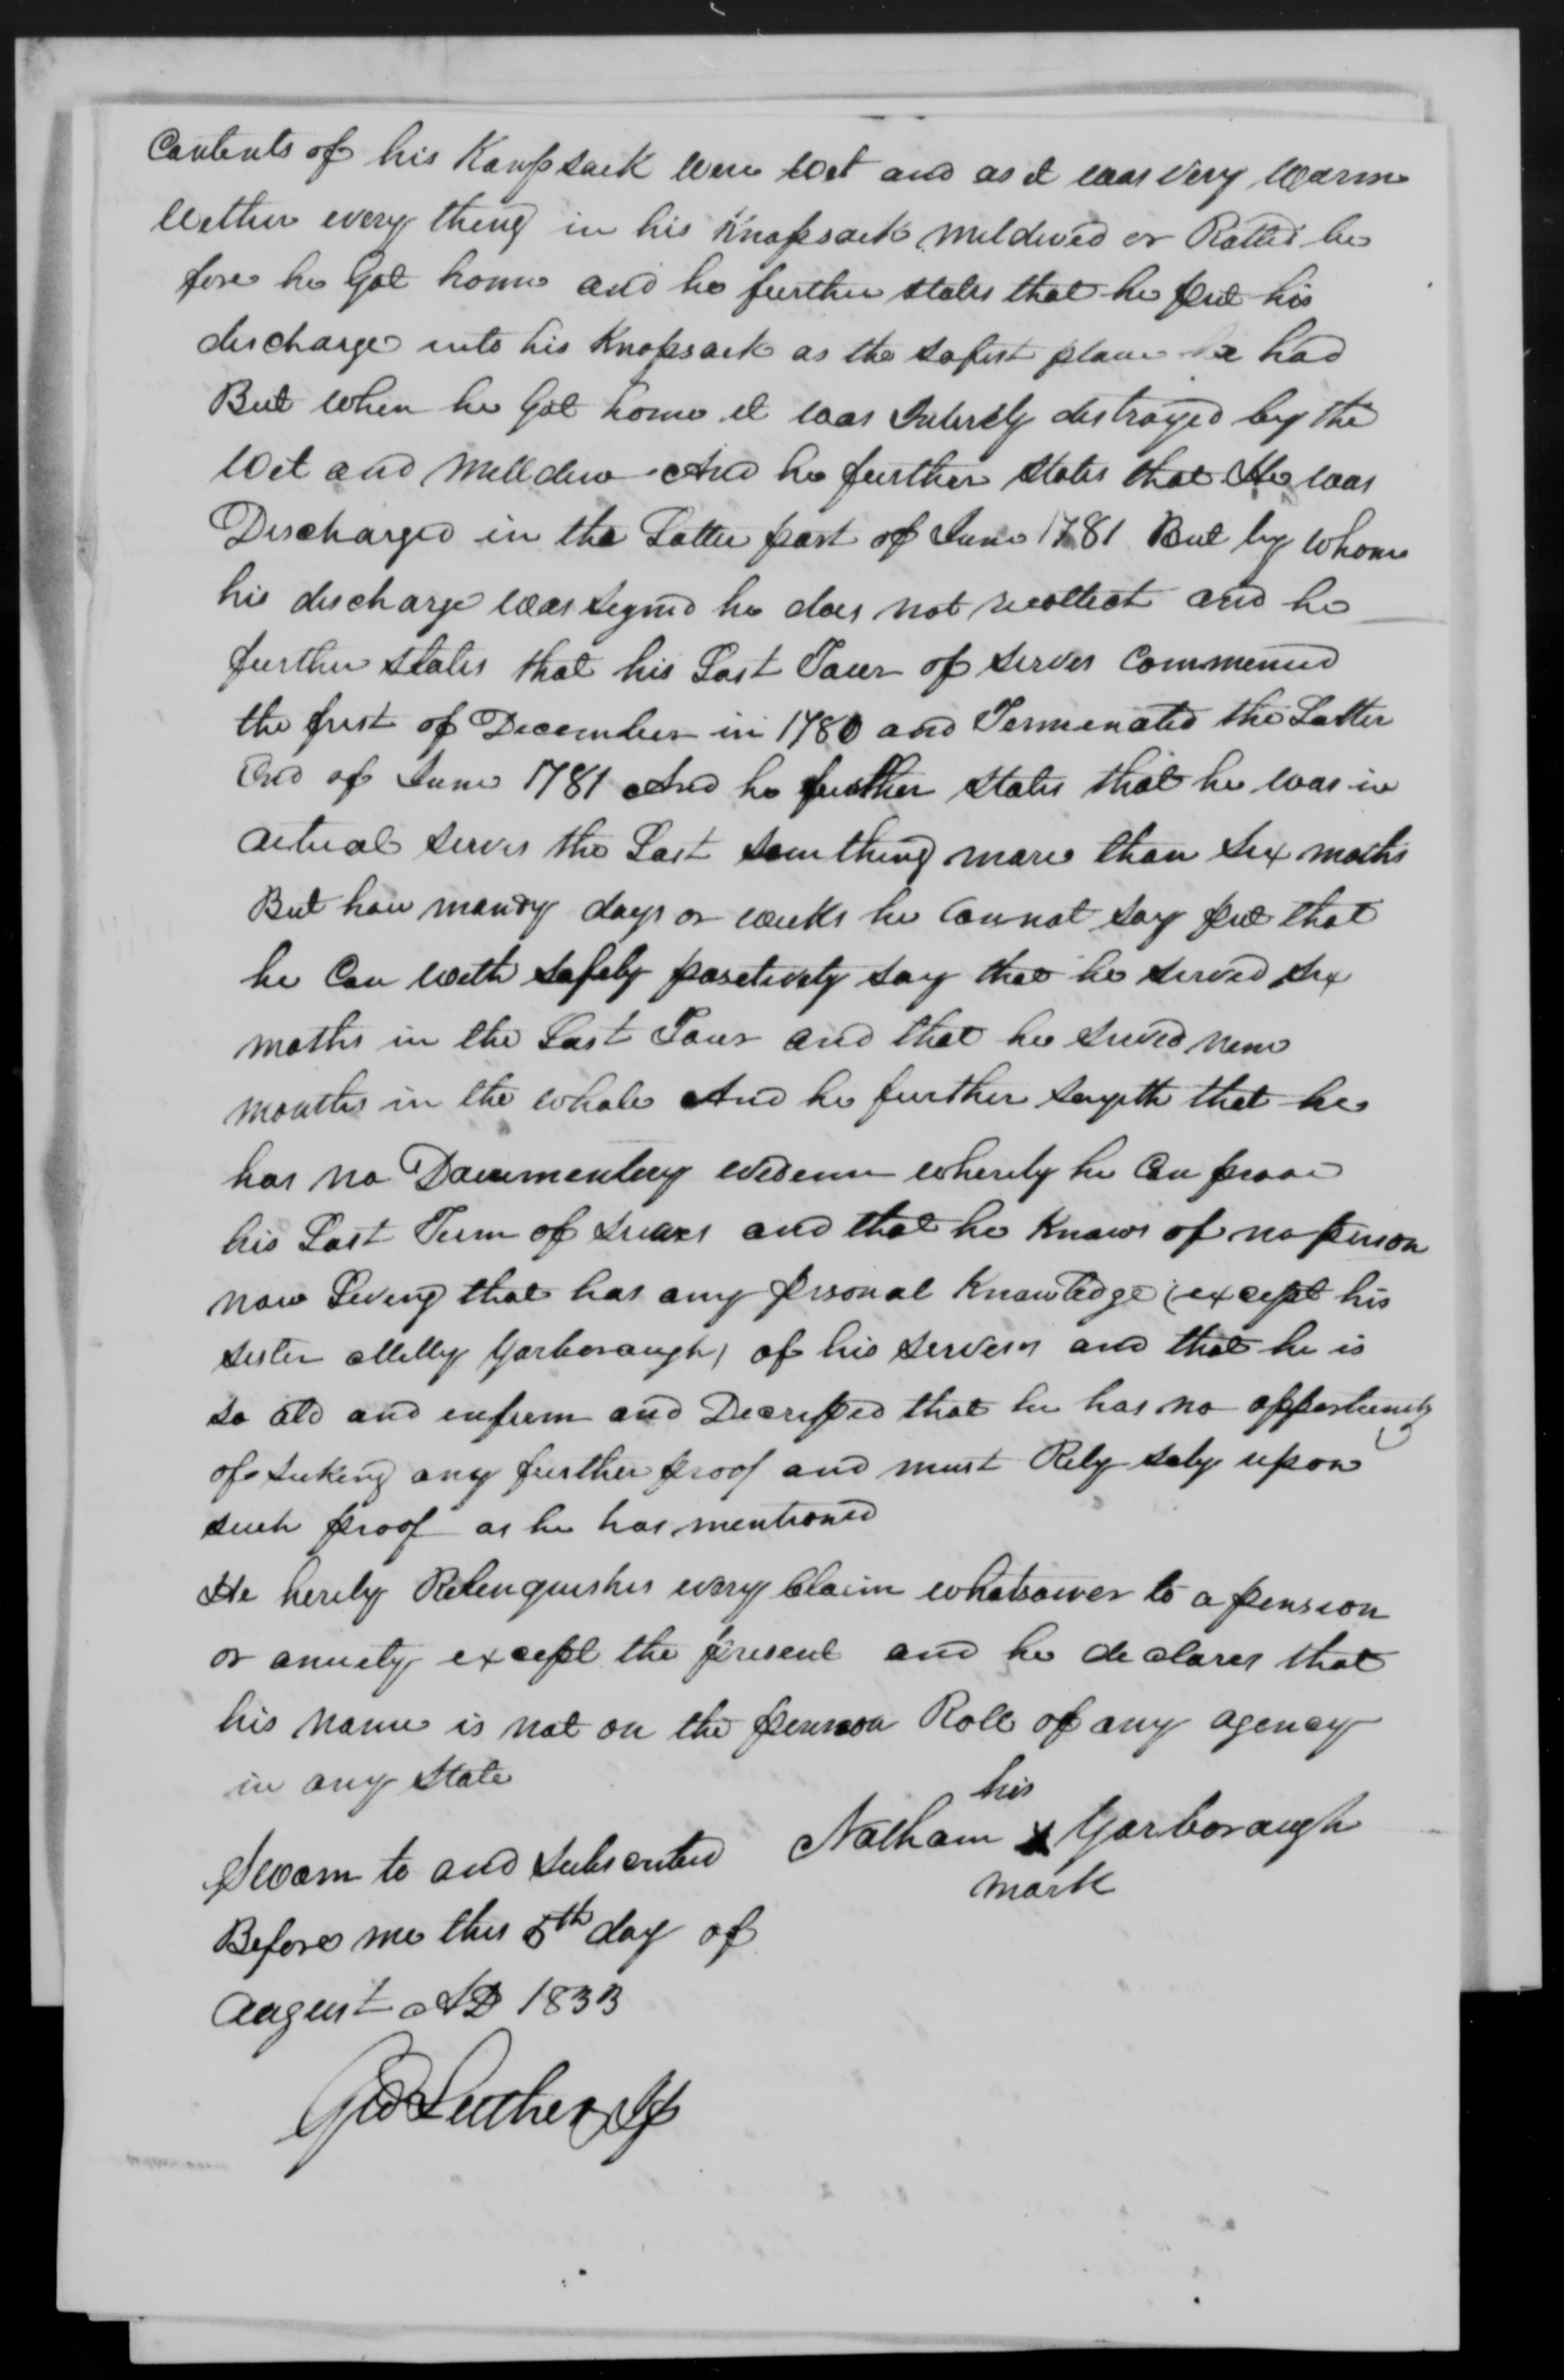 Contents of his Kanpsack were Wet and as it was very Warm
Wether every thing in his Knapsack mildewed or Rotted be
fore he Got home and he further states that he put his
discharge into his Knapsack as the safest place he had
But when he Got home it was Intirely destroyed by the
Wet and Milldew And he further states that He was
Discharged in the Latter part of June 1781 But by whome
his discharge was signed he does not recollect and he
further states that his Last Tour of serves Commenced
the first of December in 1780 and Terminated the Latter
End of June 1781 And he further states that he was in
actual serves the Last something more than Six moths
But how manoy days or weeks he Cannot say put that
he Can with safety positively say that he served six
moths in the Last Tour and that he served nine
months in the whole And he further sayeth that he
has no Documentery evidence whereby he Can proove
his Last Term of and that he knows of no person
now Living that has any prsonal Knowledge (except his
sister Milly Yarborough) of his services and that he is
so old and infirm and Decreped that he has no oppertunity
of seeking any further proof and must Rely soly upon
such proof as he has mentioned
He hereby Relinquishes every Claim whatsoever to a pension
or anuety except the present and he declares that
his name is not on the pension Roll of any agency
in any State
his
Nathan x Yarborough
mark
Sworn to and subscribed
Before me this 5th day of
August AD 1833
Geo Luther Jp